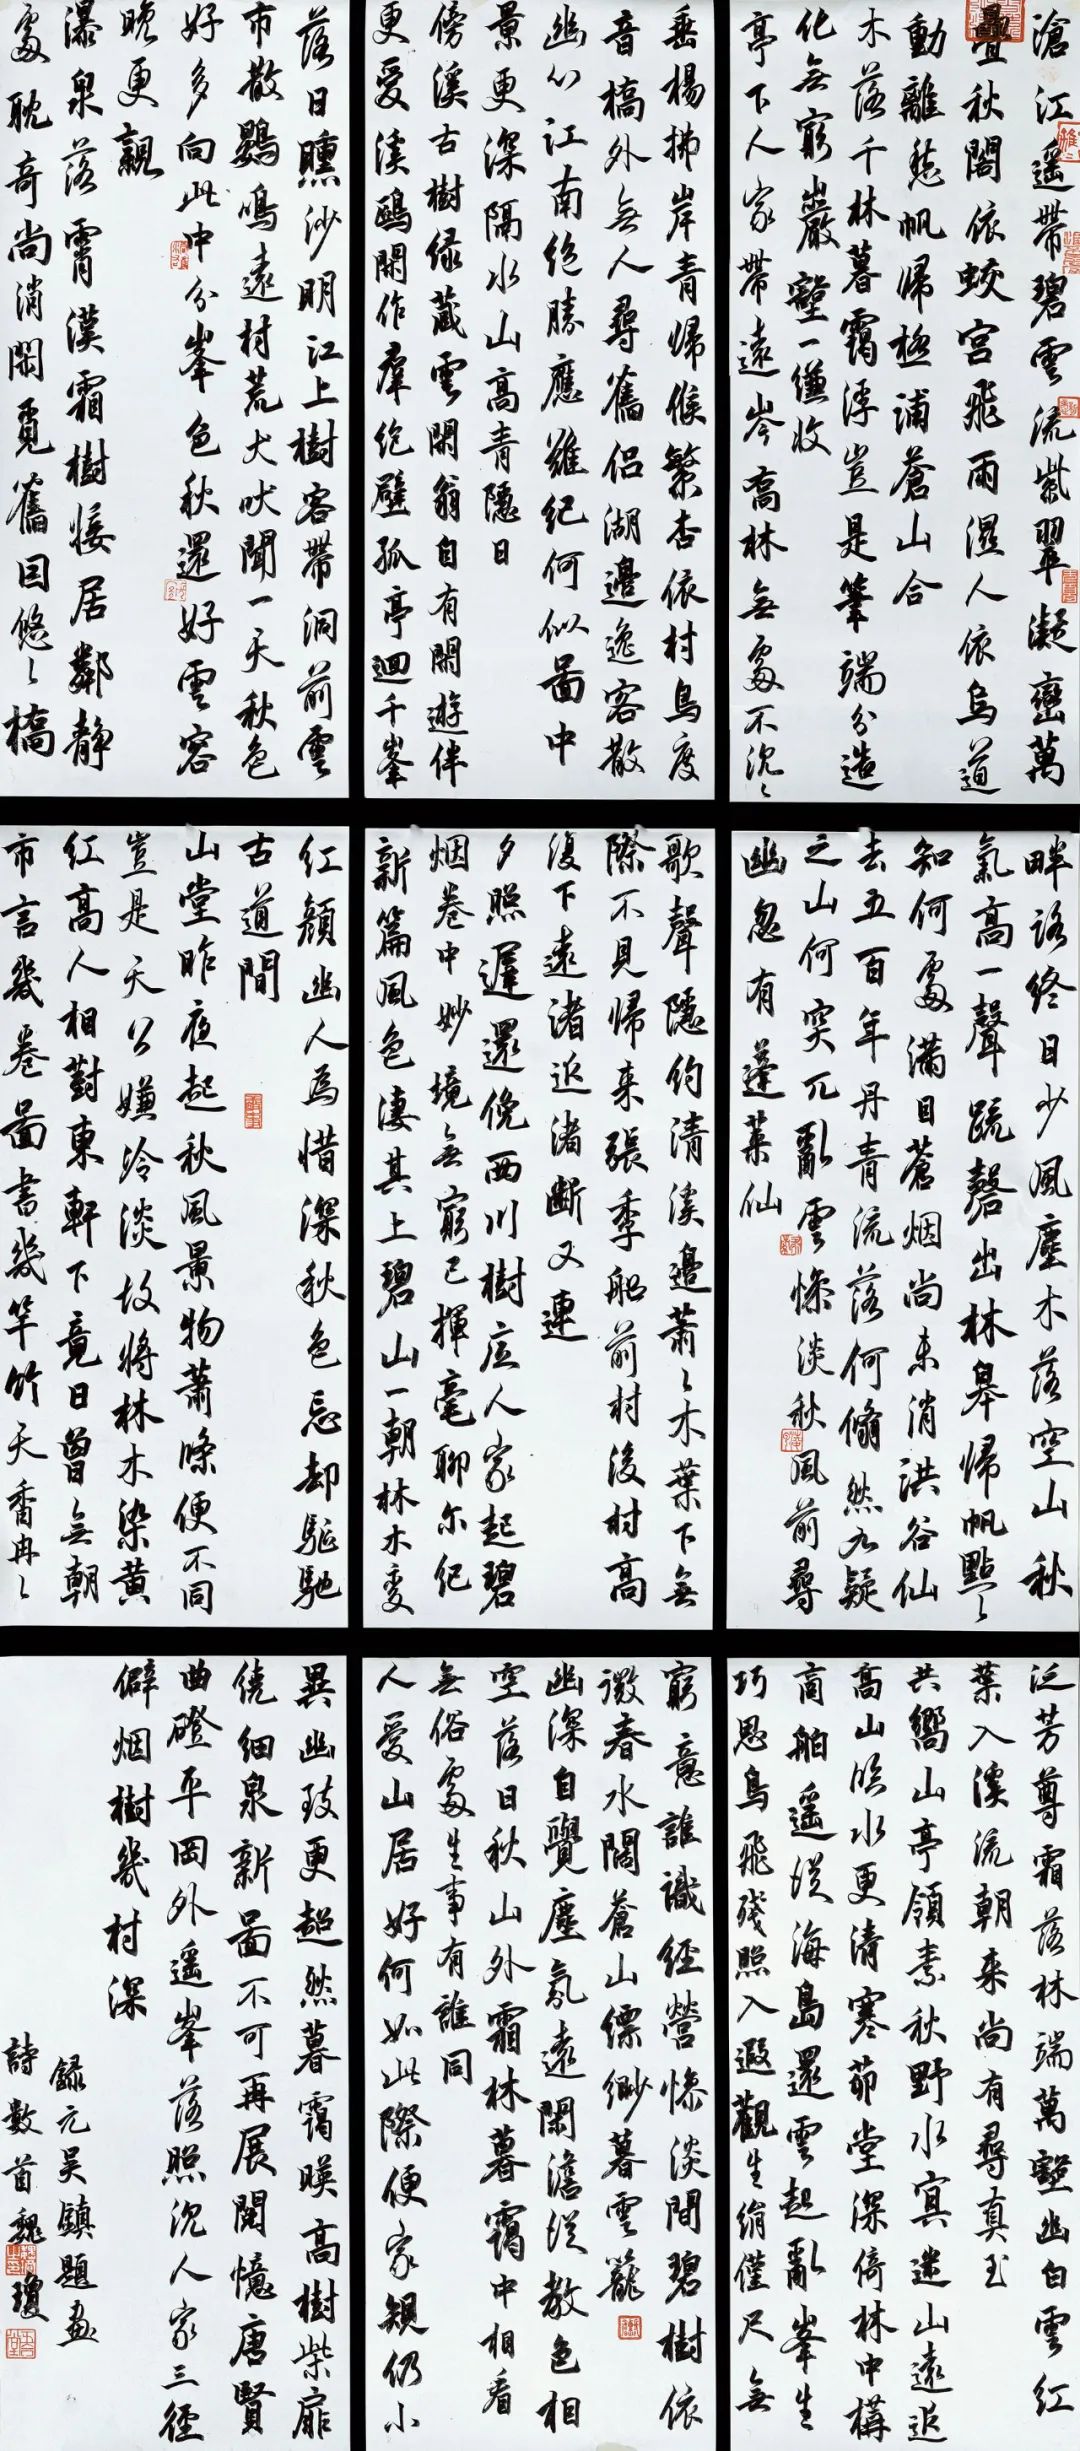 滄江遥帶碧雲流紫翠凝巒萬
疊秋閣依蛟宮飛雨濕人依鳥道
動離愁帆歸極浦蒼山合
木落千林暮靄浮豈是筆端分造
化無窮巖壑一縑收
亭下人家帶遠岑喬林無處不沉沉
垂楊拂岸青歸候繁杏依村鳥度
音橋外無人尋舊侣湖邊逸客散
幽心江南絶勝應難紀何似圖中
景更深隔水山高青隱日
傍溪古樹緑藏雲閑翁自有閑遊伴
更愛溪鷗閑作羣絶壁孤亭迴千峯
落日曛沙明江上樹客帶洞前雲
市散鷄鳴遠村荒犬吠聞一天秋色
好多向此中分峯色秋還好雲容
晚更親
瀑泉落霄漢霜樹接居鄰静
處耽奇尚消閑覓舊因悠悠橋
畔路終日少風塵木落空山秋
氣高一聲疏磬出林皋歸帆點點
知何處滿目蒼烟尚未消洪谷仙
去五百年丹青流落何翛然九疑
之山何突兀亂雲慘淡秋風前尋
幽忽有蓬萊仙
歌聲隱約清溪邊蕭蕭木葉下無
際不見歸来張季船前村後村高
復下遠渚近渚斷又連
夕照遲還俛西川樹底人家起碧
烟卷中妙境無窮已揮毫聊尔紀
新篇風色凄其上碧山一朝林木变
紅顔幽人為惜深秋色忘却驅馳
古道間
山堂昨夜起秋風景物蕭條便不同
豈是天公嫌冷淡故將林木染黄
紅高人相對東軒下竟日曾無朝
市言幾卷圖書幾竿竹天香冉冉
泛芳尊霜落林端萬壑幽白雲紅
葉入溪流朝来尚有尋真至
共嚮山亭領素秋野水冥迷山遠近
高山映水更清寒茆堂深倚林中構
商舶遥從海島還雲起亂峯生
巧思鳥飛殘照入遐觀生綃僅尺無
窮意誰識經營慘淡間碧樹依
微春水闊蒼山縹緲暮雲籠
幽深自覺塵氛遠閑澹從教色相
空落日秋山外霜林暮靄中相看
無俗處生事有誰同
人愛山居好何如此際便家規仍小
異幽致更超然暮靄暎高樹柴扉
繞細泉新圖不可再展閲憶唐賢
曲磴平岡外遥峯落照沉人家三徑
僻烟樹幾村深
録元吴鎮題畫
詩數首魏瓊